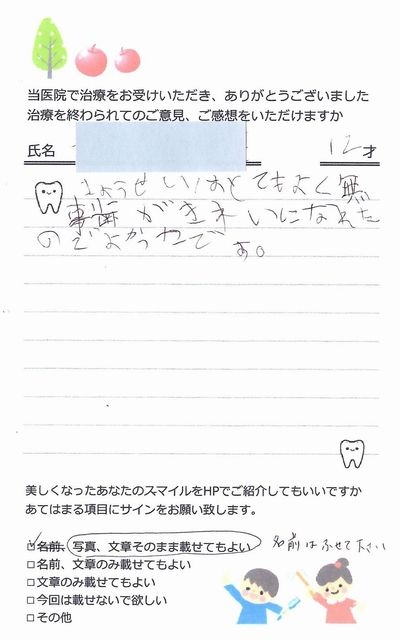 当医院で治療をお受けいただき、ありがとうございました
治療を終わられてのご意見、ご感想をいただけますか
氏名 12才
きょうせい けっかとてもよく無
事歯がきれいになれた
のでよかったで
す。
美しくなったあなたのスマイルをHPでご紹介してもいいですか
あてはまる項目にサインをお願い致します。
☑名前、写真、文章そのまま載せてもよい 名前はふせて下さい
□名前、文章のみ載せてもよい
□文章のみ載せてもよい
□今回は載せないで欲しい
□その他